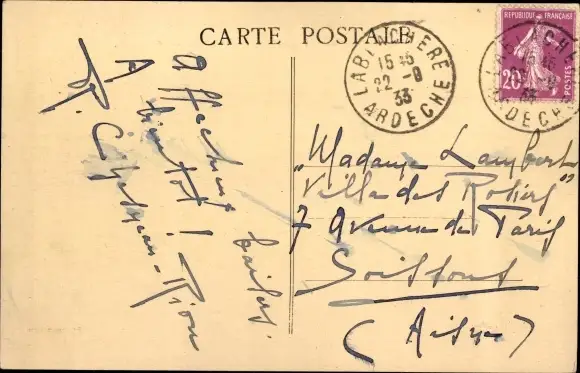 CARTE POSTALE
Affectueux baisers.
A bientôt !
P.
LABLACHERE
15 45
22 - 8
33
ARDECHE
REPUBLIQUE FRANÇAISE
20c
POSTES
"Madame Lambert
Villa des Rosiers"
7 avenue de Paris
Soissons
(Aisne)